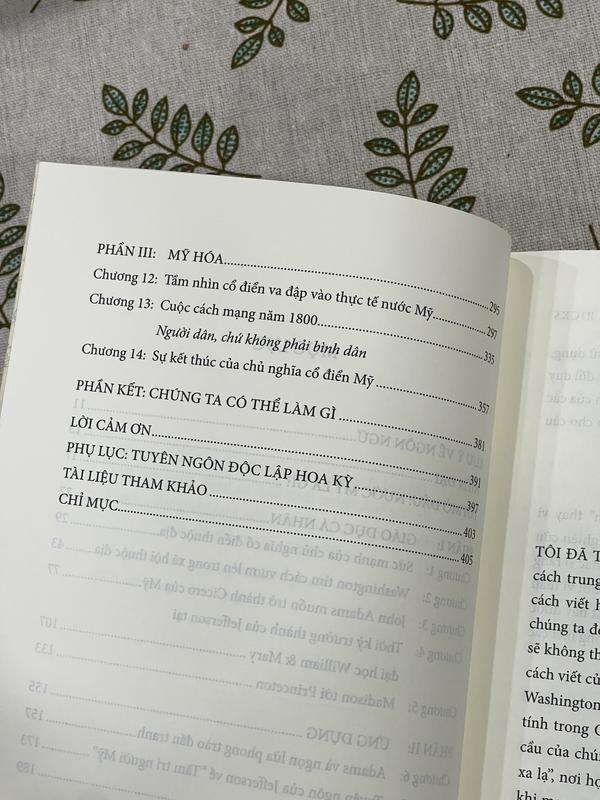 PHẦN III: MỸ HÓA........295
Chương 12: Tầm nhìn cổ điển va đập vào thực tế nước Mỹ........297
Chương 13: Cuộc cách mạng năm 1800........335
Người dân, chứ không phải bình dân
Chương 14: Sự kết thúc của chủ nghĩa cổ điển Mỹ........357
PHẦN KẾT: CHÚNG TA CÓ THỂ LÀM GÌ........381
LỜI CẢM ƠN........391
PHỤ LỤC: TUYÊN NGÔN ĐỘC LẬP HOA KỲ........397
TÀI LIỆU THAM KHẢO........403
CHỈ MỤC........405
TÔI ĐÃ T
cách trung
cách viết h
chúng ta đ
sẽ không th
cách viết củ
Washington
tính trong C
cầu của chún
xa lạ”, nơi họ